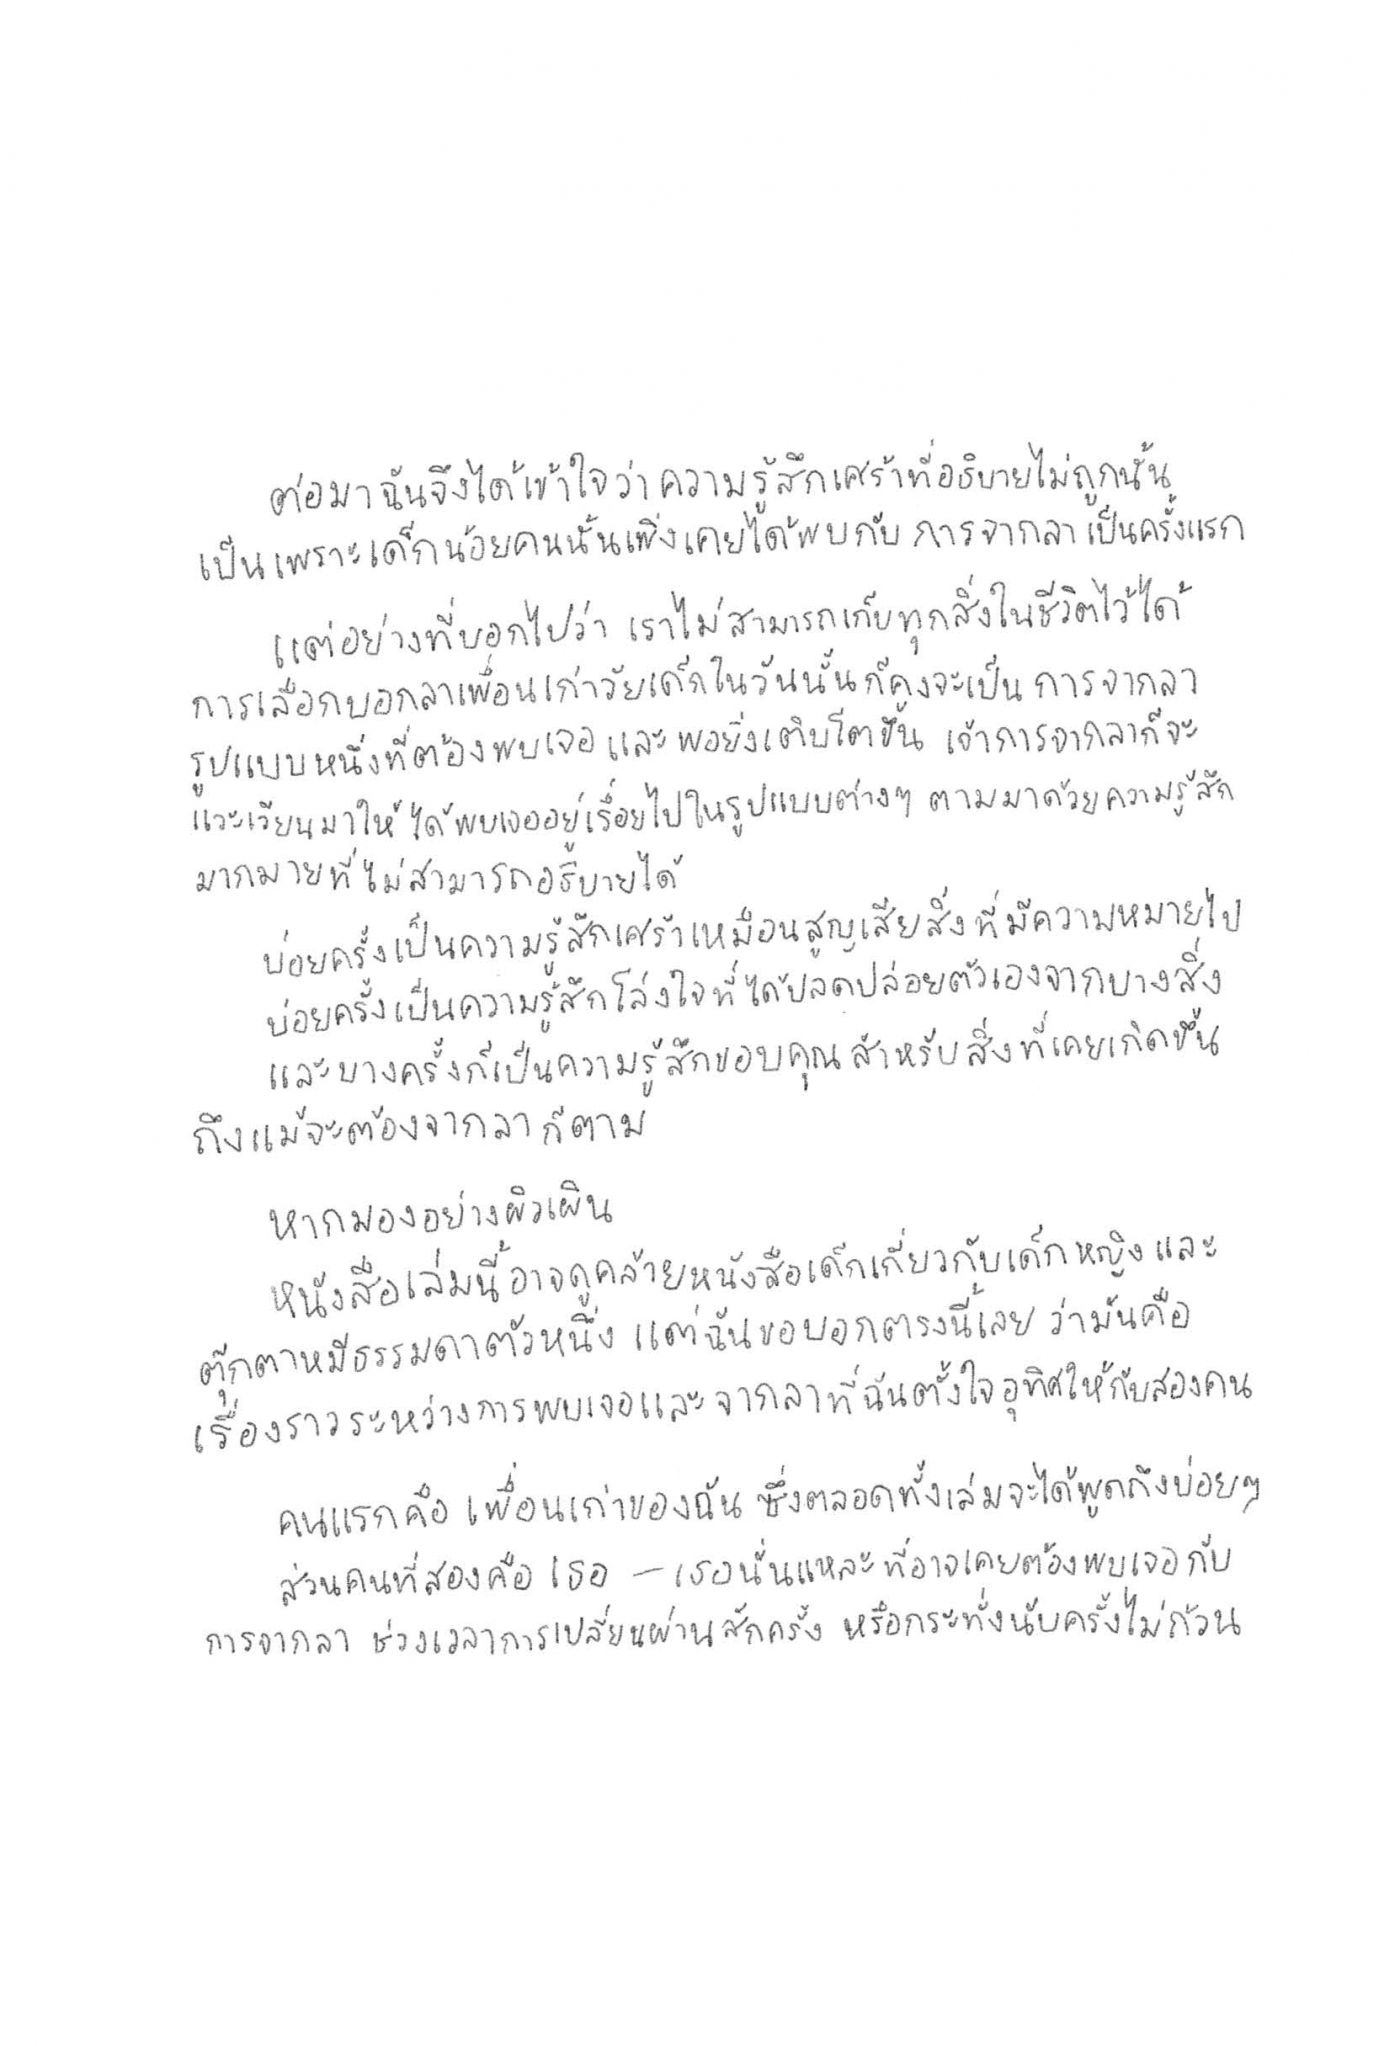 ต่อมาฉันจึงได้เข้าใจว่าความรู้สึกเศร้าที่อธิบายไม่ถูกนั้น
เป็นเพราะเด็กน้อยคนนั้นเพิ่งเคยได้พบกับ การจากลา เป็นครั้งแรก
แต่อย่างที่บอกไปว่า เราไม่สามารถเก็บทุกสิ่งในชีวิตไว้ได้
การเลือกบอกลาเพื่อนเก่าวัยเด็กในวันนั้นก็คงจะเป็น การจากลา
รูปแบบหนึ่งที่ต้องพบเจอ และ พอยิ่งเติบโตขึ้น เจ้าการจากลาก็จะ
แวะเวียนมาให้ได้พบเจออยู่เรื่อยไปในรูปแบบต่างๆ ตามมาด้วยความรู้สึก
มากมายที่ไม่สามารถอธิบายได้
บ่อยครั้งเป็นความรู้สึกเศร้าเหมือนสูญเสียสิ่งที่มีความหมายไป
บ่อยครั้งเป็นความรู้สึกโล่งใจที่ได้ปลดปล่อยตัวเองจากบางสิ่ง
และบางครั้งก็เป็นความรู้สึกขอบคุณ สำหรับสิ่งที่เคยเกิดขึ้น
ถึงแม้จะต้องจากลาก็ตาม
หากมองอย่างผิวเผิน
หนังสือเล่มนี้อาจดูคล้ายหนังสือเด็กเกี่ยวกับเด็กหญิง และ
ตุ๊กตาหมีธรรมดาตัวหนึ่ง แต่ฉันขอบอกตรงนี้เลย ว่ามันคือ
เรื่องราวระหว่างการพบเจอและจากลาที่ฉันตั้งใจอุทิศให้กับสองคน
คนแรกคือ เพื่อนเก่าของฉัน ซึ่งตลอดทั้งเล่มจะได้พูดถึงบ่อยๆ
ส่วนคนที่สองคือ เธอ — เธอนั่นแหละที่อาจเคยต้องพบเจอกับ
การจากลา ช่วงเวลาการเปลี่ยนผ่านสักครั้ง หรือกระทั่งนับครั้งไม่ถ้วน